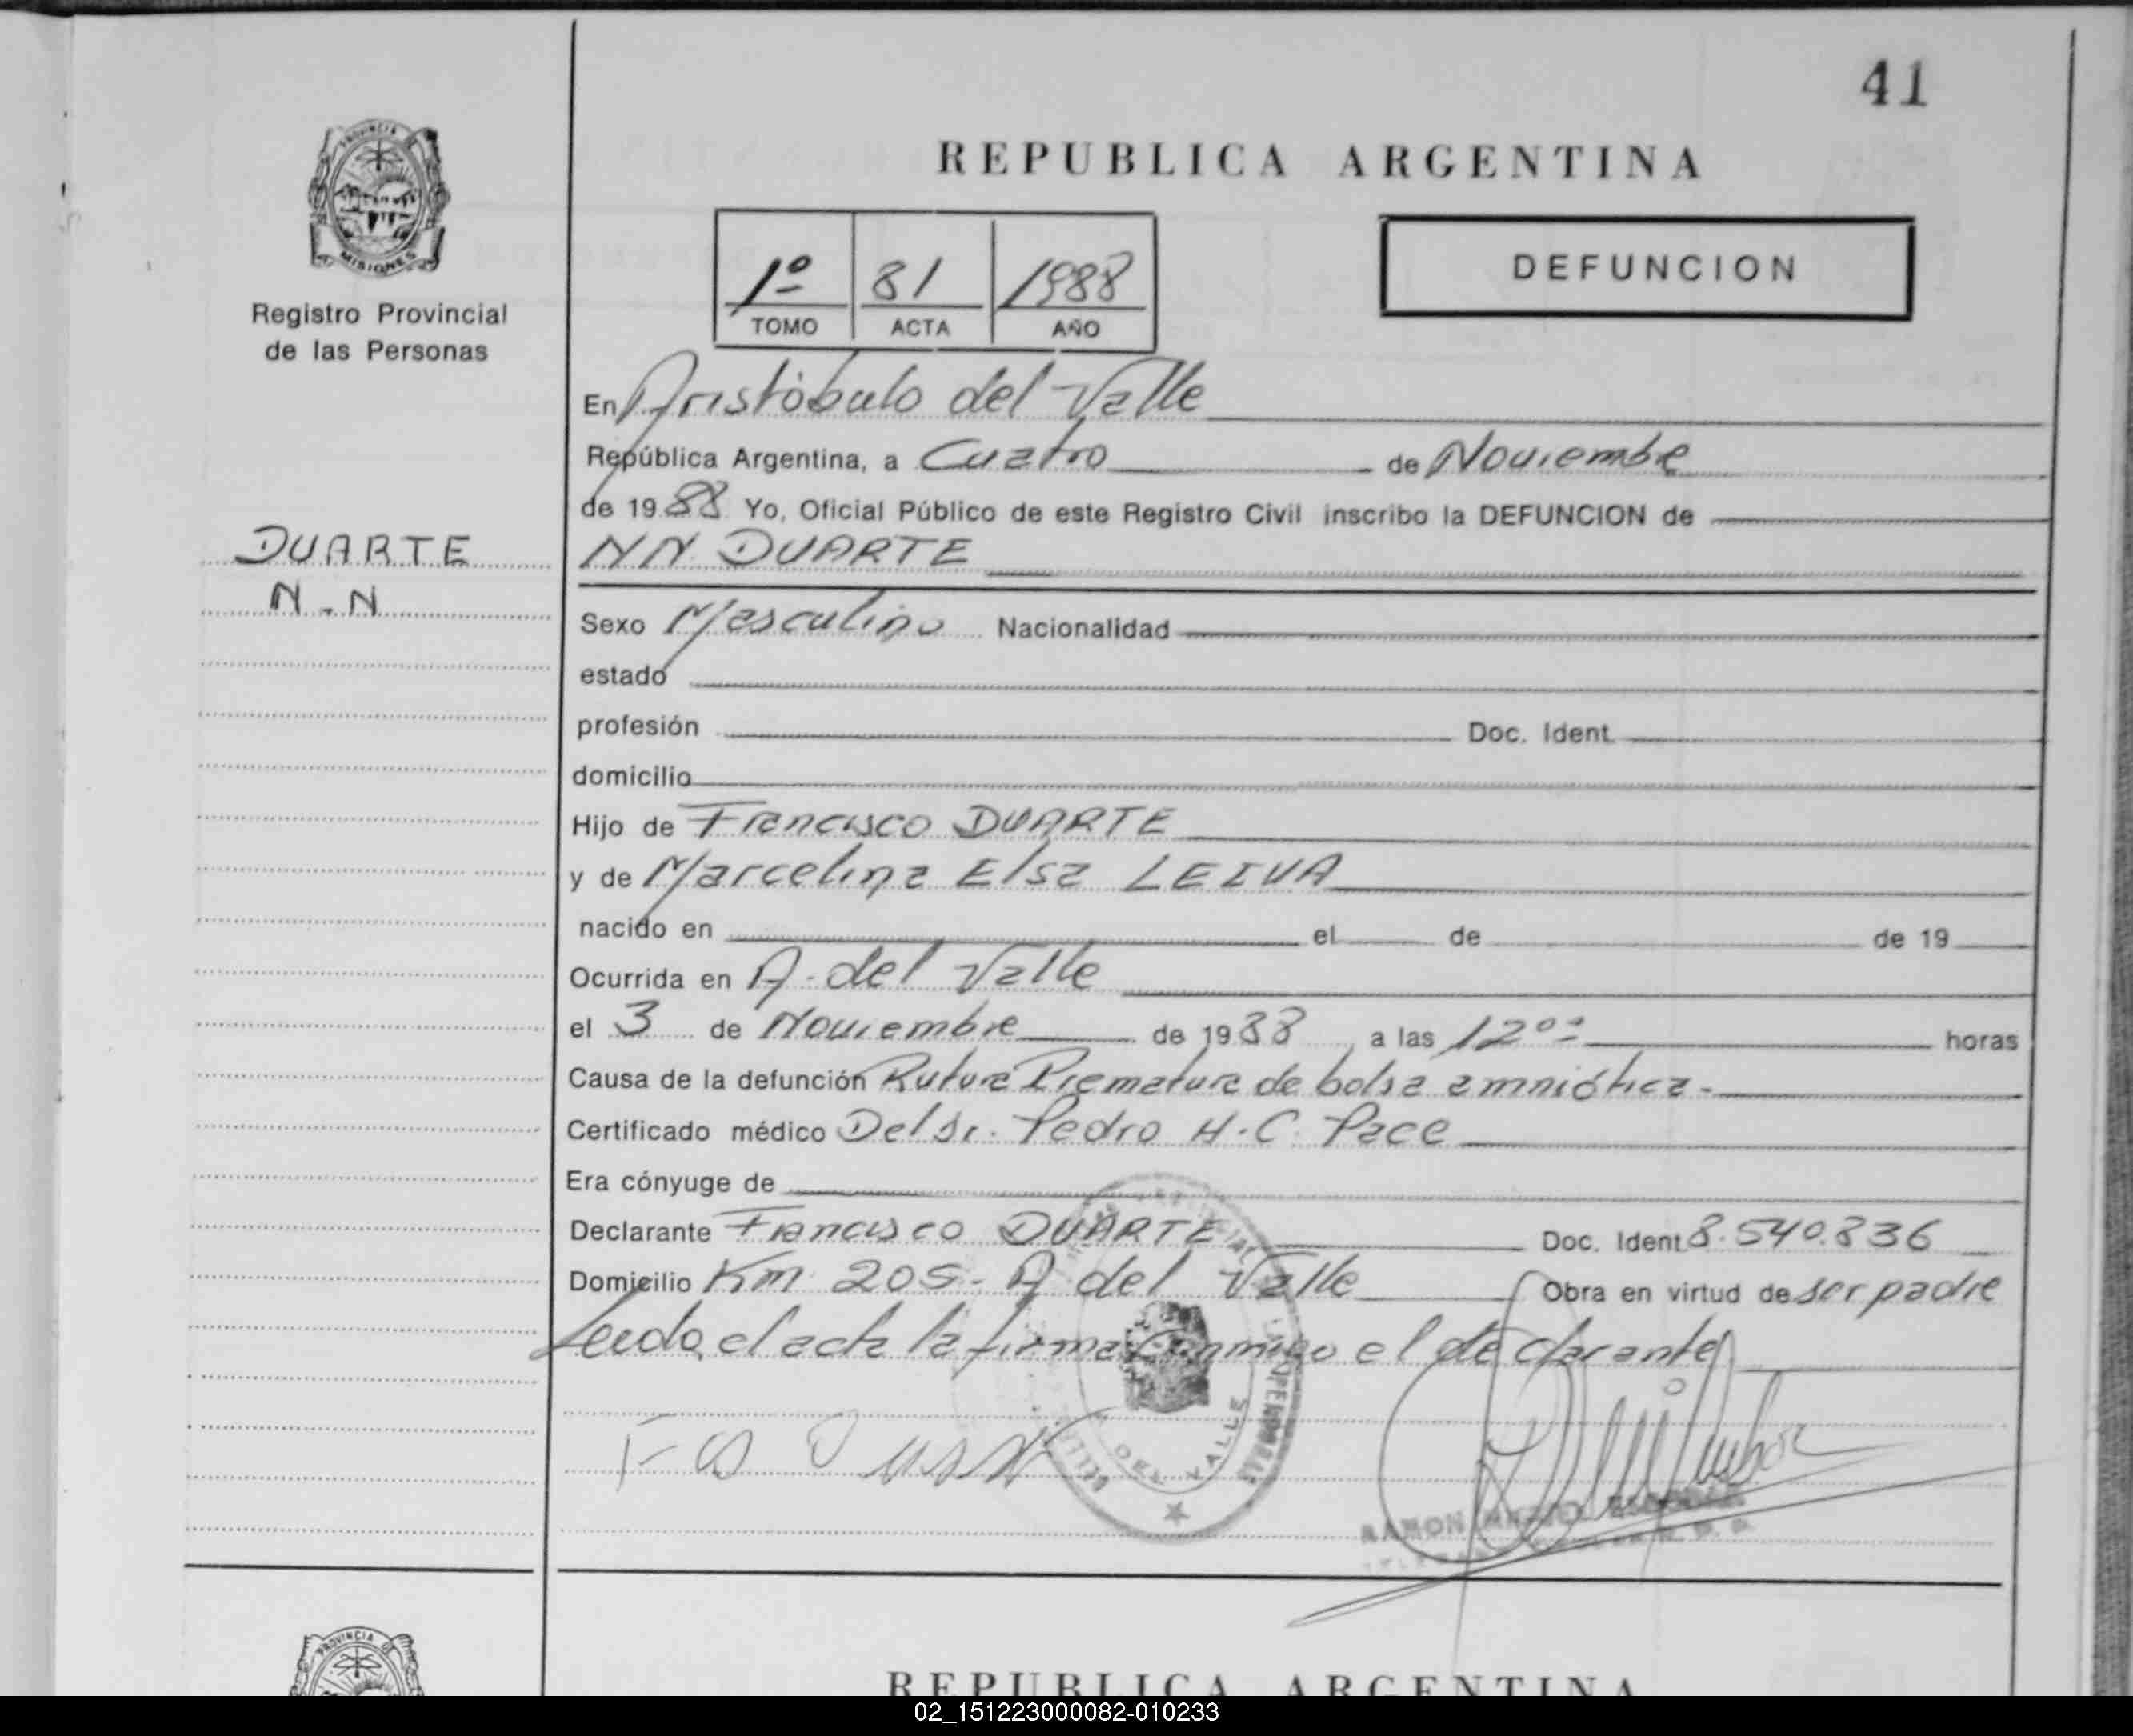 41
PROVINCIA
MISIONES
Registro Provincial
de las Personas
REPUBLICA ARGENTINA
1º 81 1988
TOMO ACTA AÑO
DEFUNCION
En Aristóbulo del Valle
República Argentina, a Cuatro de Noviembre
de 1988 Yo, Oficial Público de este Registro Civil inscribo la DEFUNCION de
DUARTE
N-N
NN DUARTE
Sexo Masculino Nacionalidad
estado
profesión Doc. Ident.
domicilio
Hijo de Francisco DUARTE
y de Marcelina Elsa LEIVA
nacido en el de de 19
Ocurrida en A. del Valle
el 3 de Noviembre de 1988, a las 12ºº horas
Causa de la defunción Rutura Prematura de bolsa amniótica.
Certificado médico Del Dr. Pedro H.C. Pace
Era cónyuge de
Declarante Francisco DUARTE Doc. Ident 8.540.836
Domicilio Km 205- A del Valle Obra en virtud de ser padre
Leida el acta la firma conmigo el declarante
VALLE
RAMON MIGUEL
PROVINCIA DE
REPUBLICA ARGENTINA
02_151223000082-010233